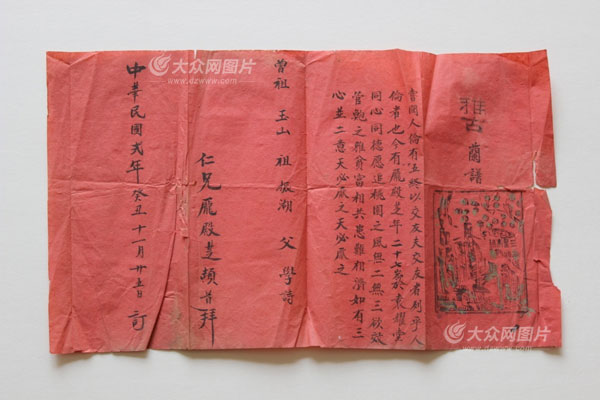 雅古蘭譜
嘗聞人倫有五終以交友夫交友者列乎人
倫者也今有龐殿芝年二十七歲於袁耀堂
同心同德愿追桃園之風無二無三欲效
管鮑之雅貧富相共患難相濟如有三
心並二意天必厭之天必厭之
曾祖 玉山 祖 湖 父 學詩
仁兄龐殿芝頓首拜
中華民國弍年癸丑十一月廿五日訂
大众网图片
www.dzwww.com
大众网图片
www.dzwww.com